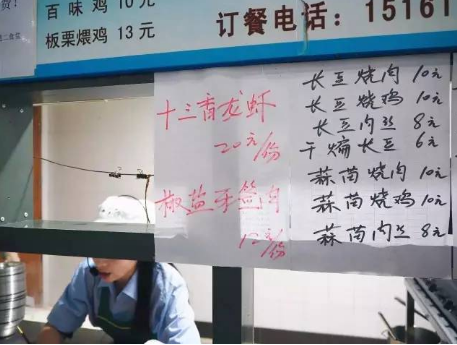 百味鸡 10元
板栗煨鸡 13元
订餐电话：15161
十三香龙虾
20元/份
椒盐牙签肉
12元/份
长豆烧肉 10元
长豆烧鸡 10元
长豆肉丝 8元
干煸长豆 6元
蒜苗烧肉 10元
蒜苗烧鸡 10元
蒜苗肉丝 8元